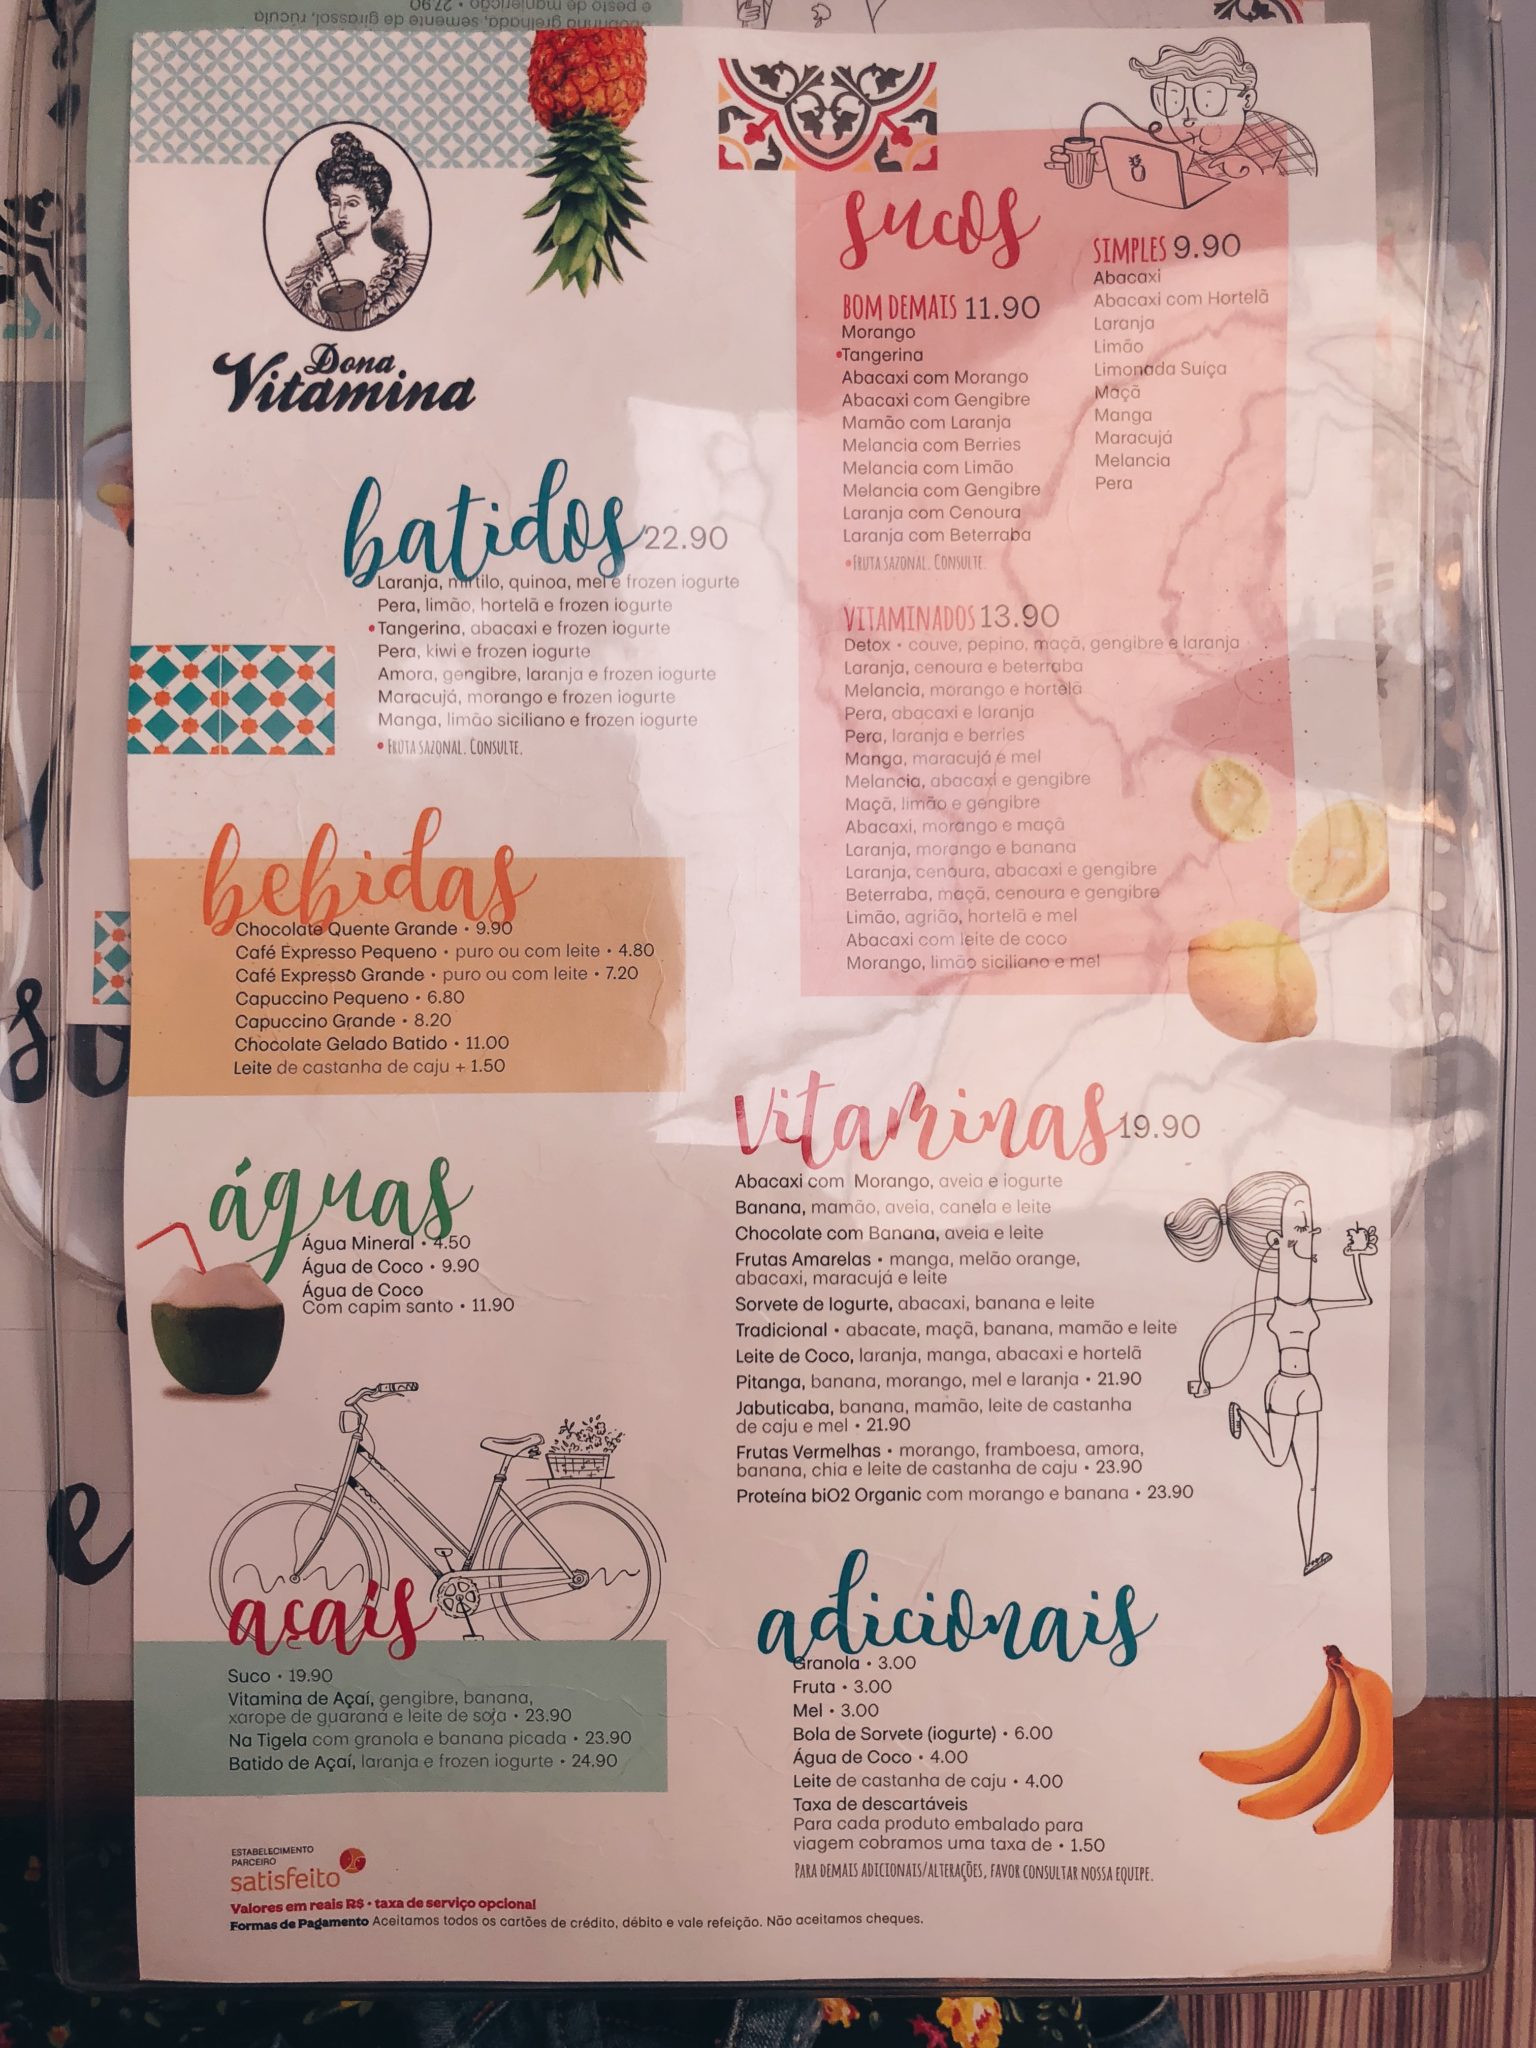 e pesto de manjericão • 27.90
abobrinha grelhada, semente de girassol, rúcula
Dona
Vitamina
batidos 22.90
Laranja, mirtilo, quinoa, mel e frozen iogurte
Pera, limão, hortelã e frozen iogurte
• Tangerina, abacaxi e frozen iogurte
Pera, kiwi e frozen iogurte
Amora, gengibre, laranja e frozen iogurte
Maracujá, morango e frozen iogurte
Manga, limão siciliano e frozen iogurte
• Fruta sazonal. Consulte.
bebidas
Chocolate Quente Grande • 9.90
Café Expresso Pequeno • puro ou com leite • 4.80
Café Expresso Grande • puro ou com leite • 7.20
Capuccino Pequeno • 6.80
Capuccino Grande • 8.20
Chocolate Gelado Batido • 11.00
Leite de castanha de caju + 1.50
águas
Água Mineral • 4.50
Água de Coco • 9.90
Água de Coco
Com capim santo • 11.90
açais
Suco • 19.90
Vitamina de Açaí, gengibre, banana,
xarope de guaraná e leite de soja • 23.90
Na Tigela com granola e banana picada • 23.90
Batido de Açaí, laranja e frozen iogurte • 24.90
sucos
BOM DEMAIS 11.90
Morango
• Tangerina
Abacaxi com Morango
Abacaxi com Gengibre
Mamão com Laranja
Melancia com Berries
Melancia com Limão
Melancia com Gengibre
Laranja com Cenoura
Laranja com Beterraba
• Fruta sazonal. Consulte.
SIMPLES 9.90
Abacaxi
Abacaxi com Hortelã
Laranja
Limão
Limonada Suíça
Maçã
Manga
Maracujá
Melancia
Pera
VITAMINADOS 13.90
Detox • couve, pepino, maçã, gengibre e laranja
Laranja, cenoura e beterraba
Melancia, morango e hortelã
Pera, abacaxi e laranja
Pera, laranja e berries
Manga, maracujá e mel
Melancia, abacaxi e gengibre
Maçã, limão e gengibre
Abacaxi, morango e maçã
Laranja, morango e banana
Laranja, cenoura, abacaxi e gengibre
Beterraba, maçã, cenoura e gengibre
Limão, agrião, hortelã e mel
Abacaxi com leite de coco
Morango, limão siciliano e mel
Vitaminas 19.90
Abacaxi com Morango, aveia e iogurte
Banana, mamão, aveia, canela e leite
Chocolate com Banana, aveia e leite
Frutas Amarelas • manga, melão orange,
abacaxi, maracujá e leite
Sorvete de Iogurte, abacaxi, banana e leite
Tradicional • abacate, maçã, banana, mamão e leite
Leite de Coco, laranja, manga, abacaxi e hortelã
Pitanga, banana, morango, mel e laranja • 21.90
Jabuticaba, banana, mamão, leite de castanha
de caju e mel • 21.90
Frutas Vermelhas • morango, framboesa, amora,
banana, chia e leite de castanha de caju • 23.90
Proteína biO2 Organic com morango e banana • 23.90
adicionais
Granola • 3.00
Fruta • 3.00
Mel • 3.00
Bola de Sorvete (iogurte) • 6.00
Água de Coco • 4.00
Leite de castanha de caju • 4.00
Taxa de descartáveis
Para cada produto embalado para
viagem cobramos uma taxa de • 1.50
PARA DEMAIS ADICIONAIS/ALTERAÇÕES, FAVOR CONSULTAR NOSSA EQUIPE.
ESTABELECIMENTO
PARCEIRO
satisfeito
Valores em reais R$ • taxa de serviço opcional
Formas de Pagamento Aceitamos todos os cartões de crédito, débito e vale refeição. Não aceitamos cheques.